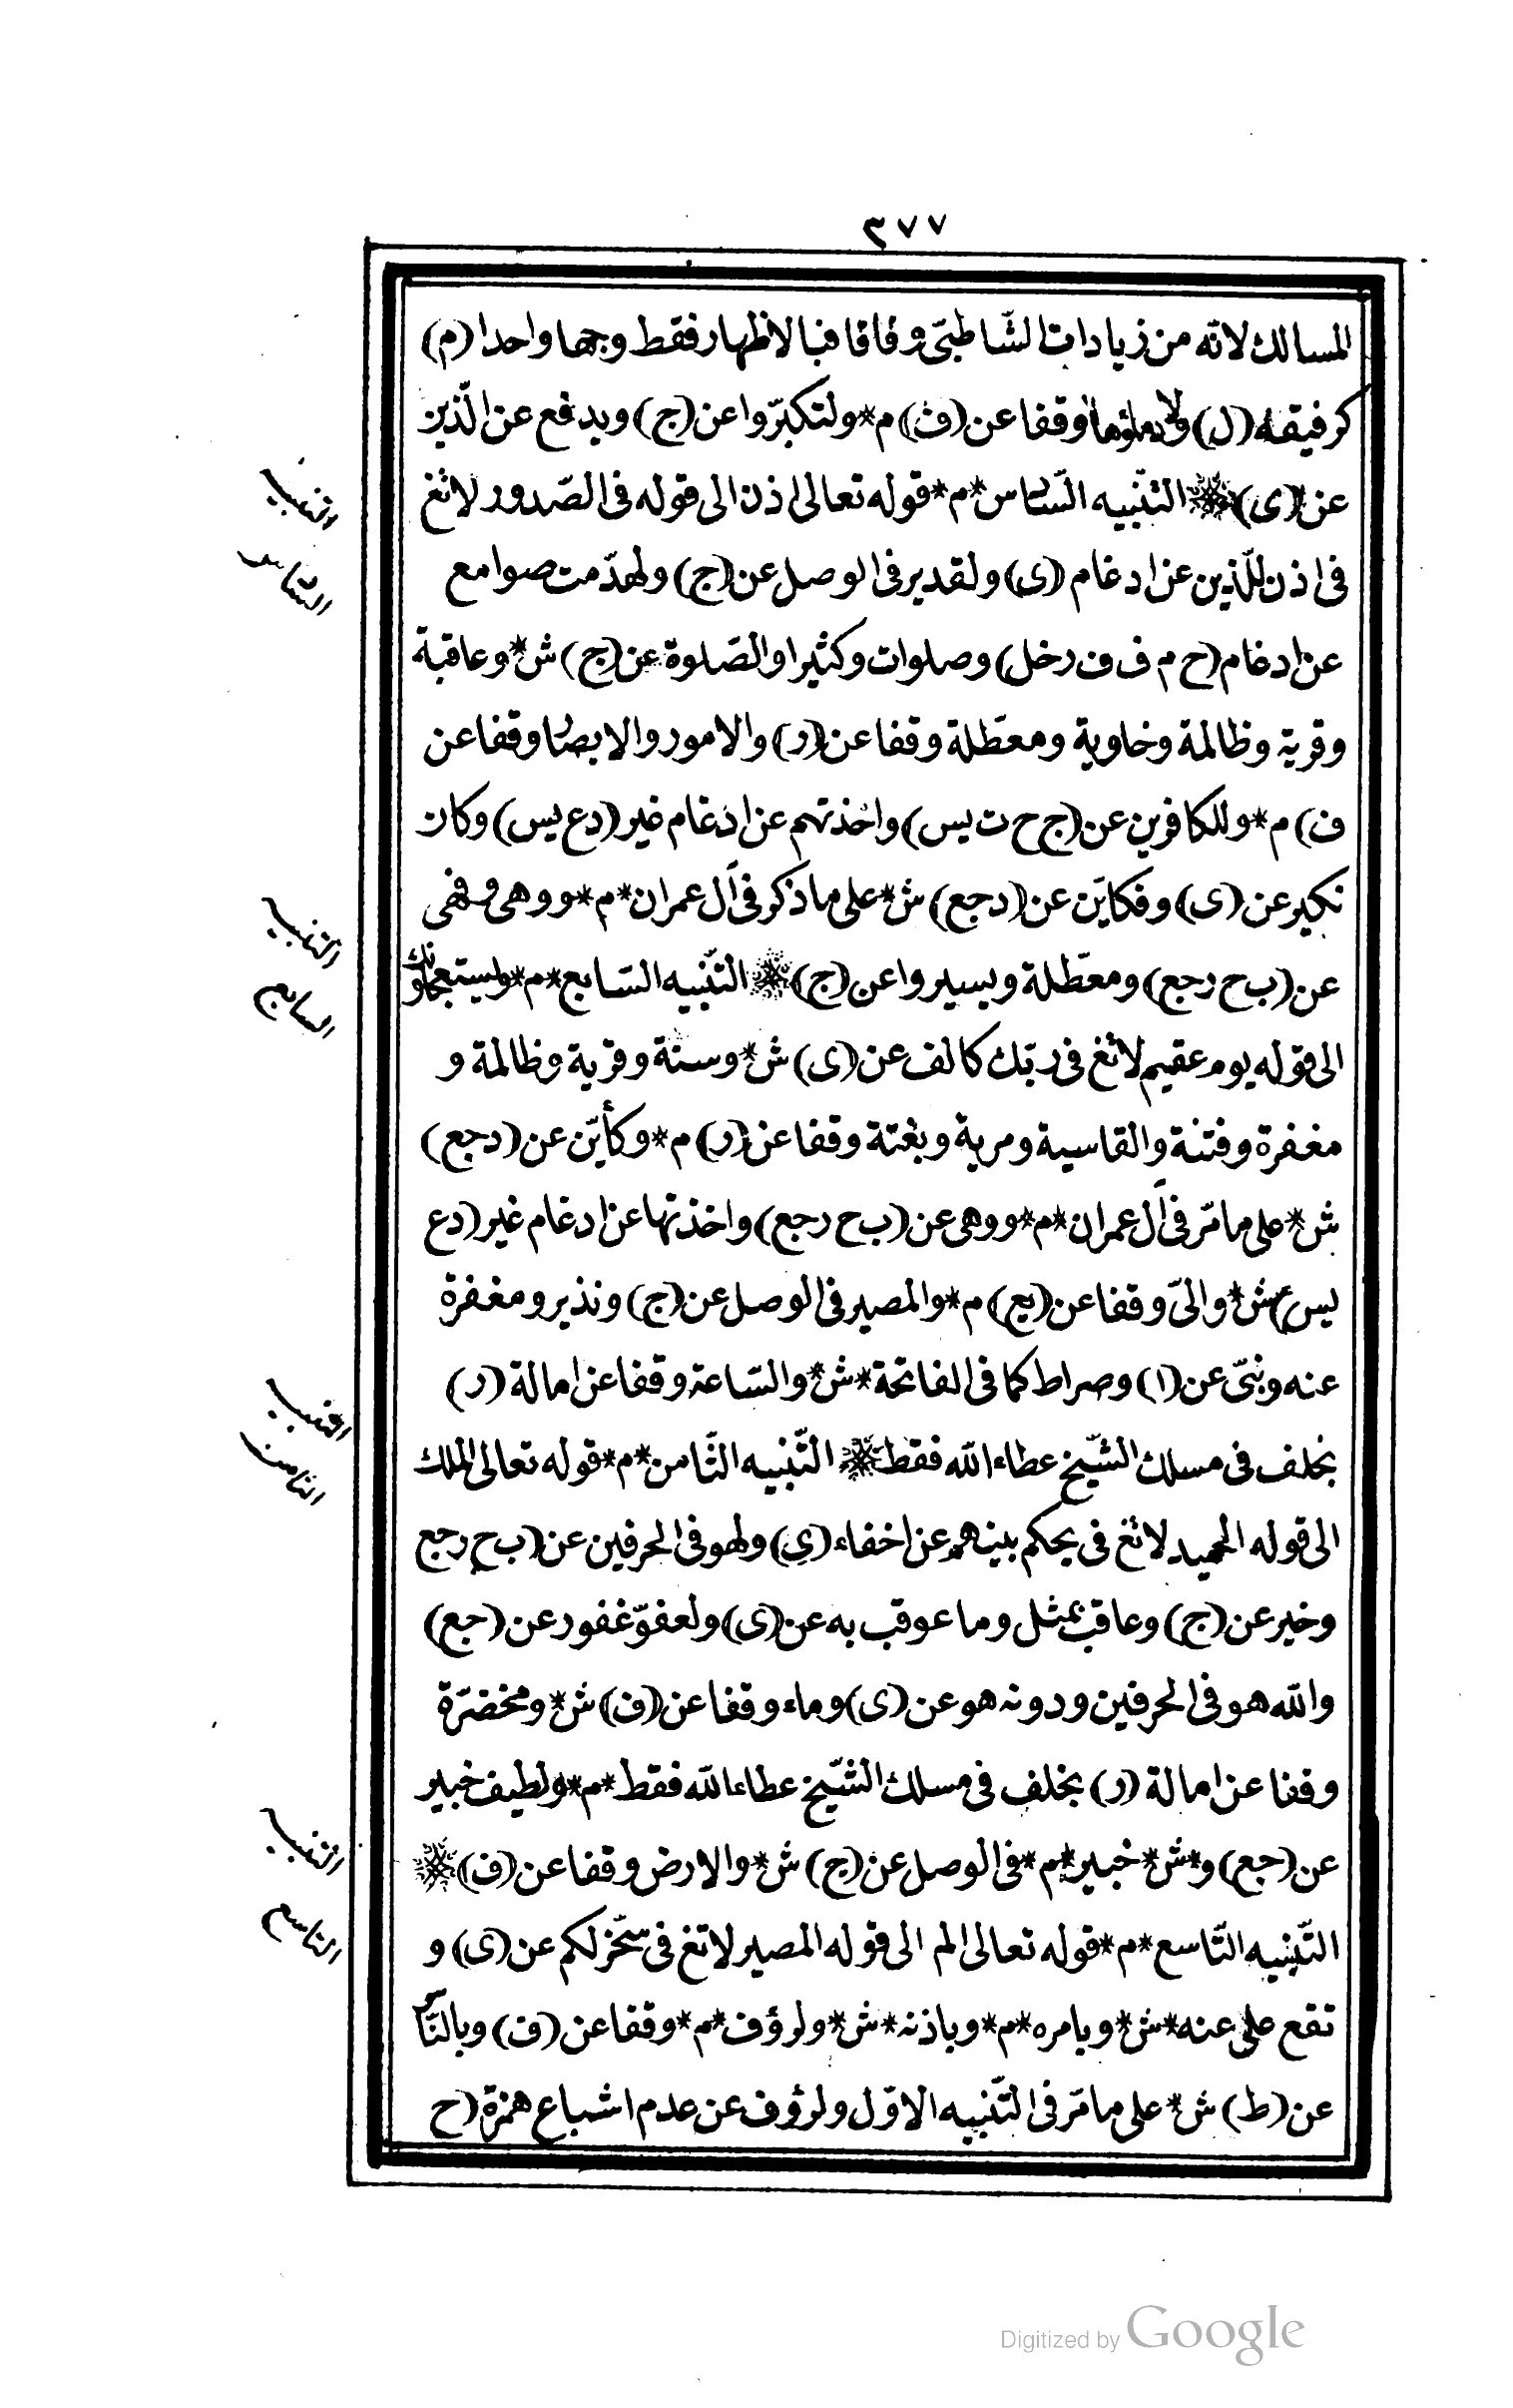 ٣٧٧
المسالك لانّه من زيادات الشّاطبىّ وفاقا فبالاظهار فقط وجها واحدا (م)
كرفيقه (ل) ولا دماؤها وقفا عن (ف) م* ولتكبّروا عن (ج) ويدفع عن الّذين
عن (ى) * التّنبيه السّادس *م* قوله تعالى اذن الى قوله فى الصّدور لا تغ
فى اذن للّذين عن ادغام (ى) ولقدير فى الوصل عن (ج) ولهدّمت صوامع
عن ادغام (ح م ف ف رخل) وصلوات وكثيرا والصّلوة عن (ج) ش* وعاقبة
وقرية وظالمة وخاوية ومعطّلة وقفا عن (ر) والامور والابصار وقفا عن
ف) م* وللكافرين عن (ج ح ت يس) واخذتهم عن ادغام غير (دع يس) وكان
نكير عن (ى) وفكايّن عن (دجع) ش* على ما ذكر فى آل عمران *م* ووهى وفهى
عن (ب ح رجع) ومعطّلة ويسيروا عن (ج) * التّنبيه السّابع *م* ويستعجلونك
الى قوله يوم عقيم لا تغ فى ربّك كالف عن (ى) ش* وسنة وقرية وظالمة و
مغفرة وفتنة والقاسية ومرية وبغتة وقفا عن (ر) م* وكأيّن عن (دجع)
ش* على ما مرّ فى آل عمران *م* ووهى عن (ب ح رجع) واخذتها عن ادغام غير (دع
يس) ش* والىّ وقفا عن (يع) م* والمصير فى الوصل عن (ج) ونذير ومغفرة
عنه ونبىّ عن (ا) وصراط كما فى الفاتحة *ش* والسّاعة وقفا عن امالة (ر)
بخلف فى مسلك الشّيخ عطاء الله فقط * التّنبيه الثّامن *م* قوله تعالى الملك
الى قوله الحميد لا تغ فى يحكم بينهم عن اخفاء (ى) ولهو فى الحرفين عن (ب ح رجع
وخير عن (ج) وعاقب بمثل وما عوقب به عن (ى) ولعفوّ غفور عن (جع)
والله هو فى الحرفين ودونه هو عن (ى) وماء وقفا عن (ف) ش* ومخضرّة
وقفا عن امالة (ر) بخلف فى مسلك الشّيخ عطاء الله فقط *م* ولطيف خبير
عن (جع) و*ش* خبير *م* فى الوصل عن (ج) ش* والارض وقفا عن (ف) *
التّنبيه التّاسع *م* قوله تعالى الم الى قوله المصير لا تغ فى سخّر لكم عن (ى) و
تقع على عنه *ش* وبامره *م* وباذنه *ش* ولرؤف *م* وقفا عن (ف) وبالنّاس
عن (ط) ش* على ما مرّ فى التّنبيه الاوّل ولرؤف عن عدم اشباع همزة (ح
التنبيه
السادس
التنبيه
السابع
التنبيه
الثامن
التنبيه
التاسع
Digitized by Google